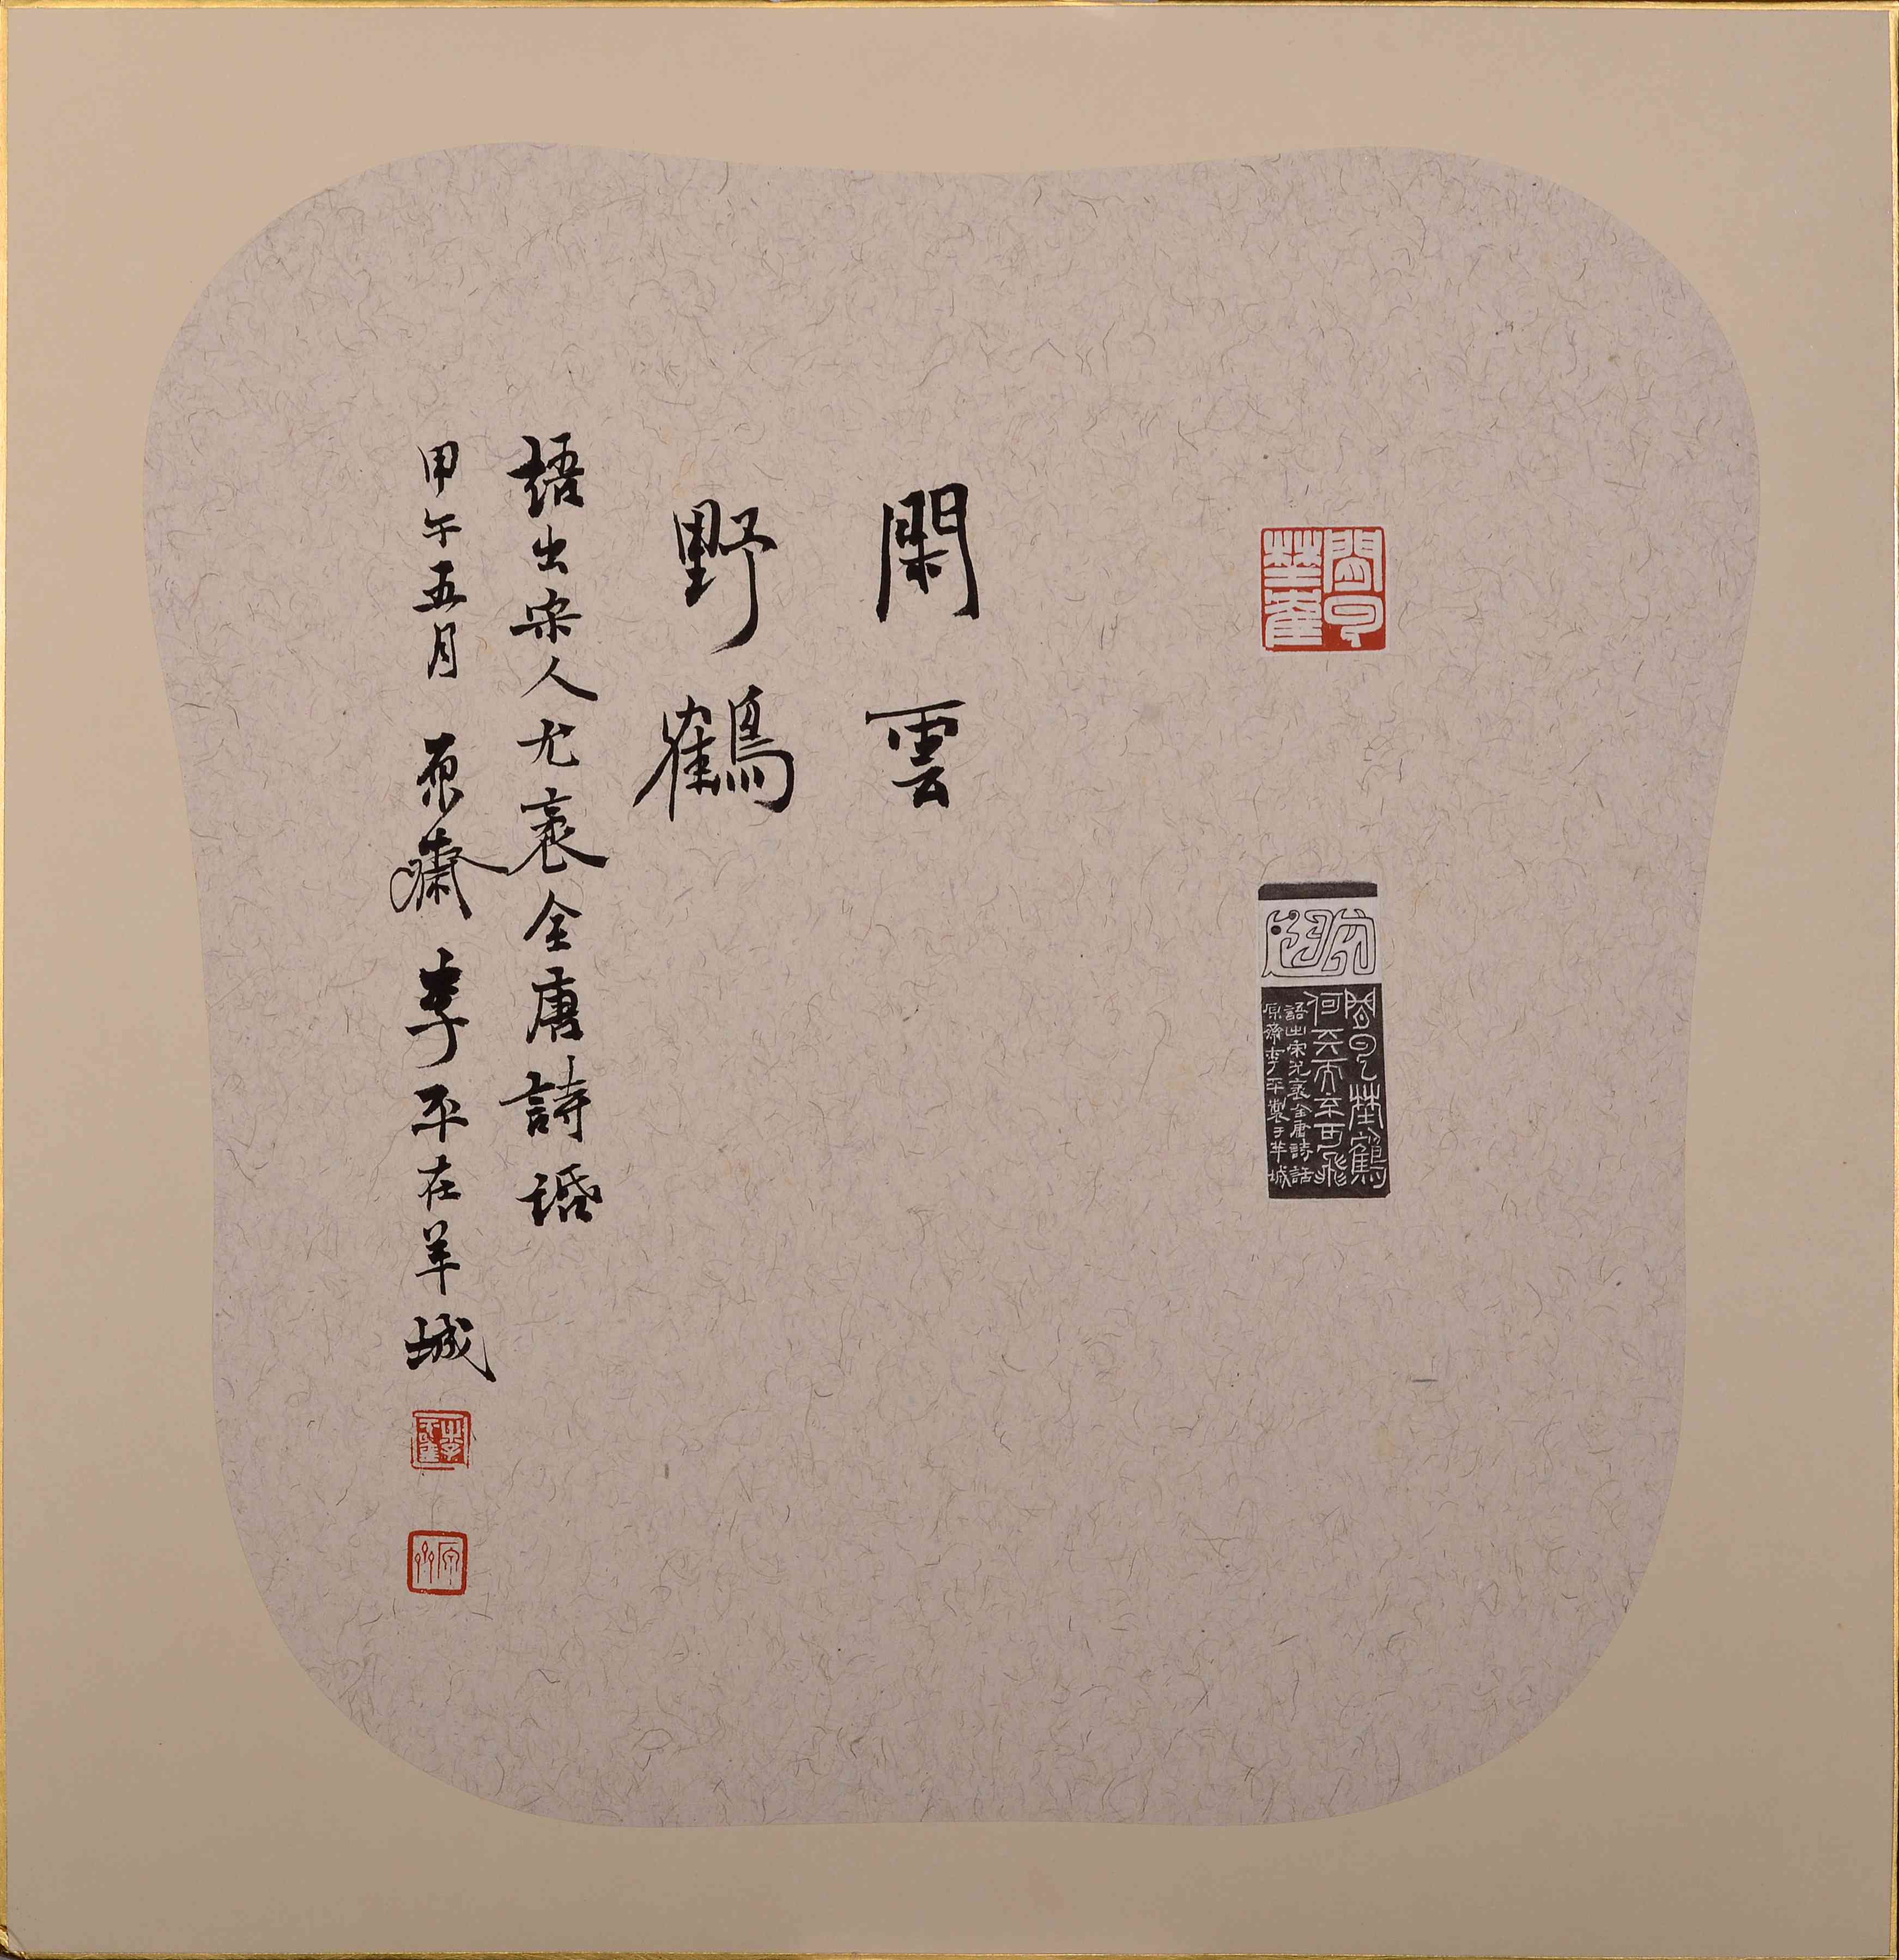 閒云
野隺
閒云野鶴
何天而不可飛
語出宋尤袤全唐詩話
原齋李平製于羊城
閑雲
野鶴
語出宋人尤袤全唐詩話
甲午五月 原齋 李平在羊城
李平